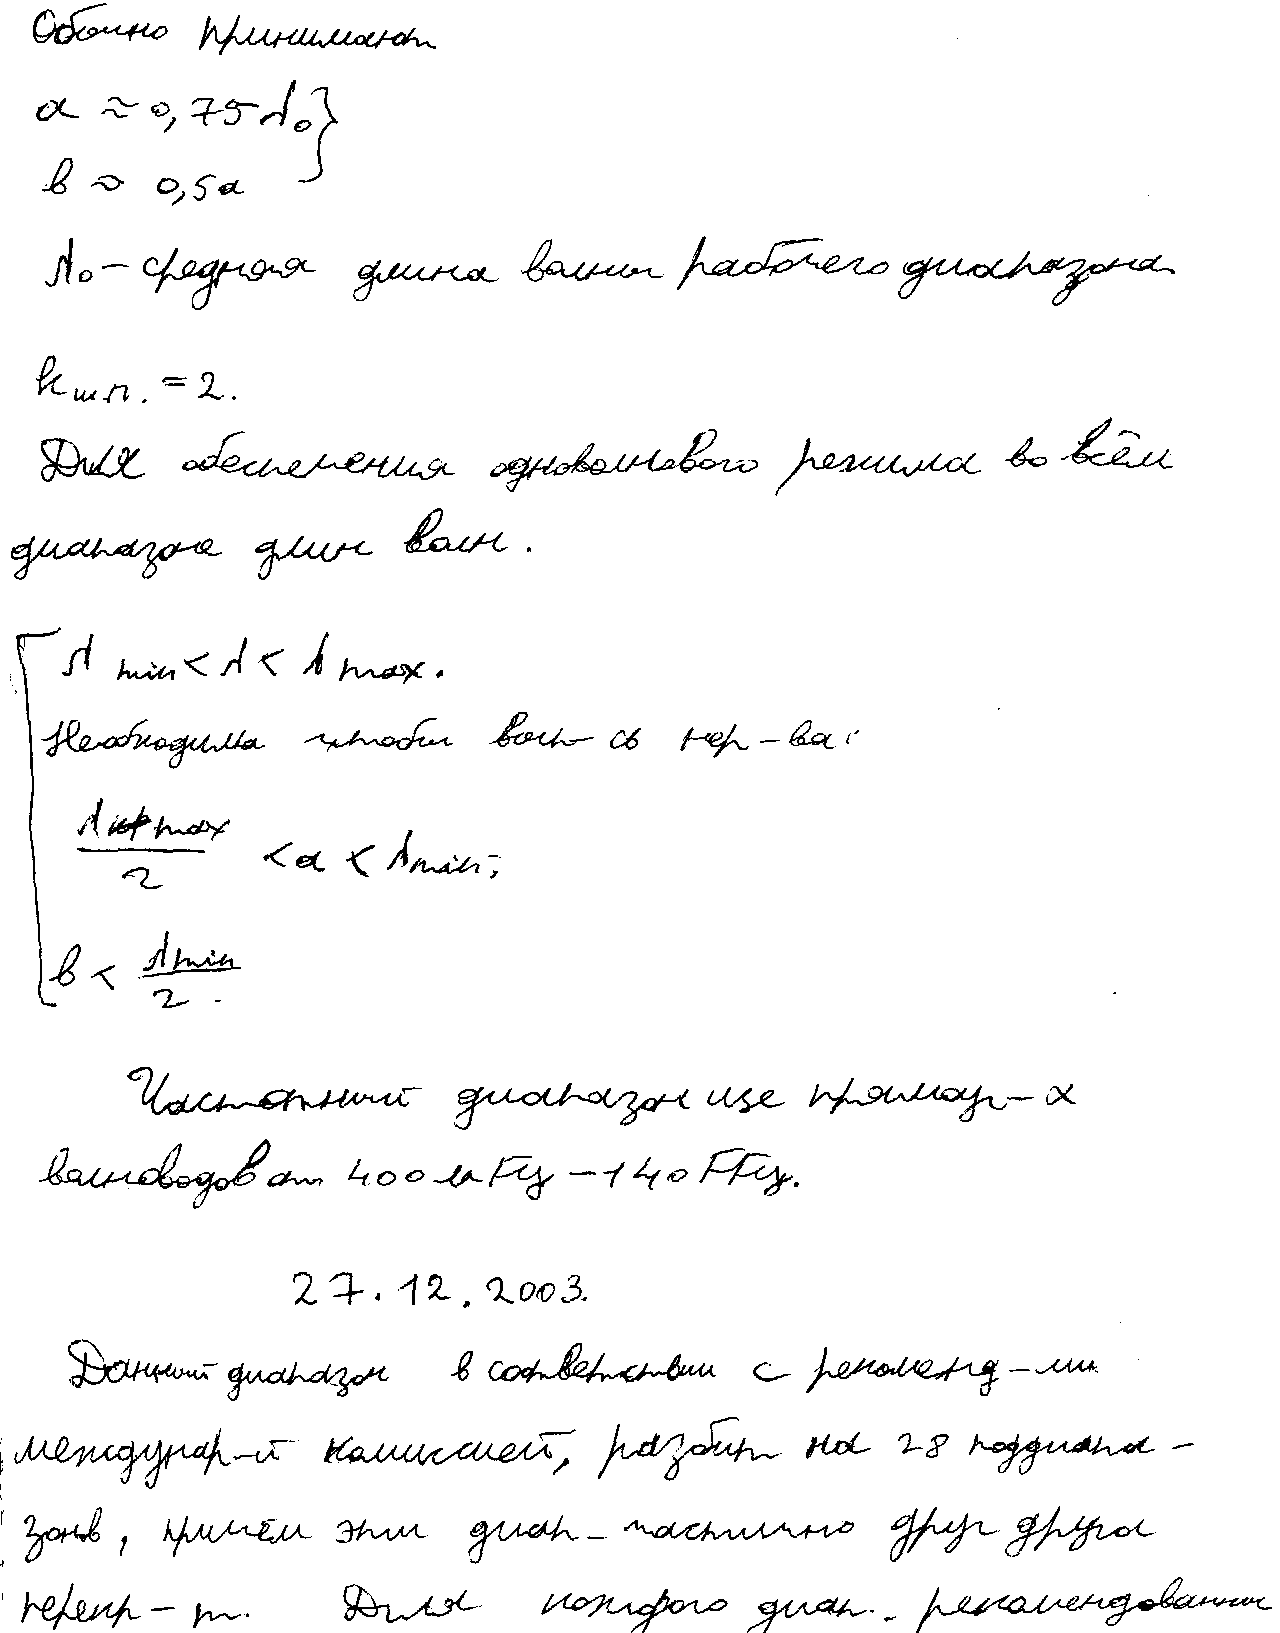 Обычно принимают
a ≈ 0,75λ₀ }
b ≈ 0,5a
λ₀ – средняя длина волны рабочего диапазона
k ш.п. = 2.
Для обеспечения одноволнового режима во всём
диапазоне длин волн.
λ min < λ < λ max.
Необходимо чтобы вып-сь нер-ва:
λ max / 2 < a < λ min;
b < λ min / 2.
Частотный диапазон исп прямоуг-х
волноводов от 400 мГц – 140 ГГц.
27.12.2003.
Данный диапазон в соответствии с рекоменд-ми
междунар-й комиссией, разбит на 28 поддиапа-
зонов, причём эти диап- частично друг друга
перекр-т. Для каждого диап. рекомендованы